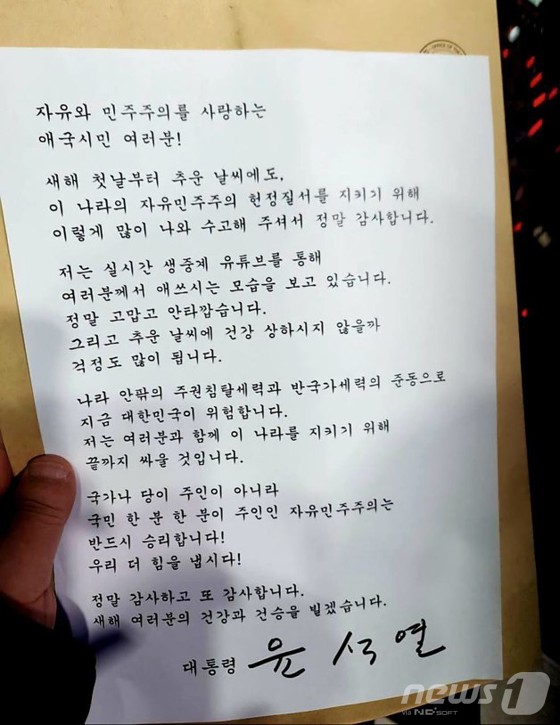 자유와 민주주의를 사랑하는
애국시민 여러분!
새해 첫날부터 추운 날씨에도,
이 나라의 자유민주주의 헌정질서를 지키기 위해
이렇게 많이 나와 수고해 주셔서 정말 감사합니다.
저는 실시간 생중계 유튜브를 통해
여러분께서 애쓰시는 모습을 보고 있습니다.
정말 고맙고 안타깝습니다.
그리고 추운 날씨에 건강 상하시지 않을까
걱정도 많이 됩니다.
나라 안팎의 주권침탈세력과 반국가세력의 준동으로
지금 대한민국이 위험합니다.
저는 여러분과 함께 이 나라를 지키기 위해
끝까지 싸울 것입니다.
국가나 당이 주인이 아니라
국민 한 분 한 분이 주인인 자유민주주의는
반드시 승리합니다!
우리 더 힘을 냅시다!
정말 감사하고 또 감사합니다.
새해 여러분의 건강과 건승을 빌겠습니다.
대통령 윤석열
news1
via ND soft